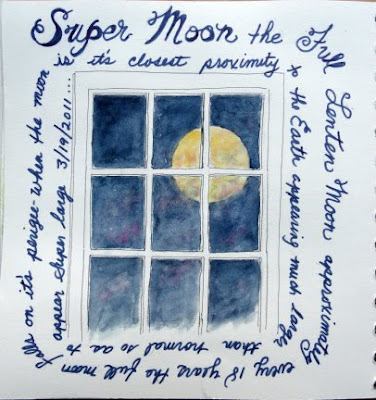 Super Moon the
Full Lenten Moon approximately
every 18 years the full moon
falls on it's perigee- when the moon
is it's closest proximity
to the Earth appearing much larger
than normal so as to
appear super large 3/19/2011...